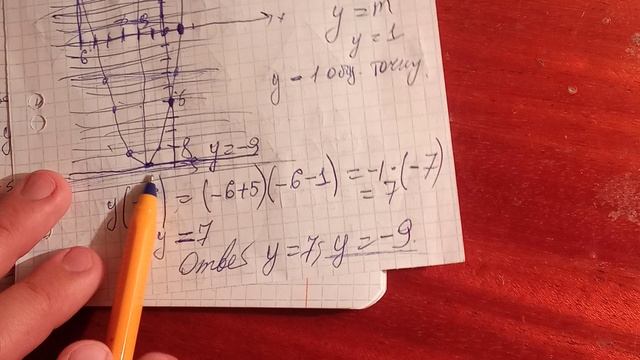 y = m
y = 1
y = 1 общ. точку.
6
-6
-8 y = -9
y(-) = (-6+5)(-6-1) = -1·(-7)
= 7
y = 7
Ответ y = 7; y = -9.